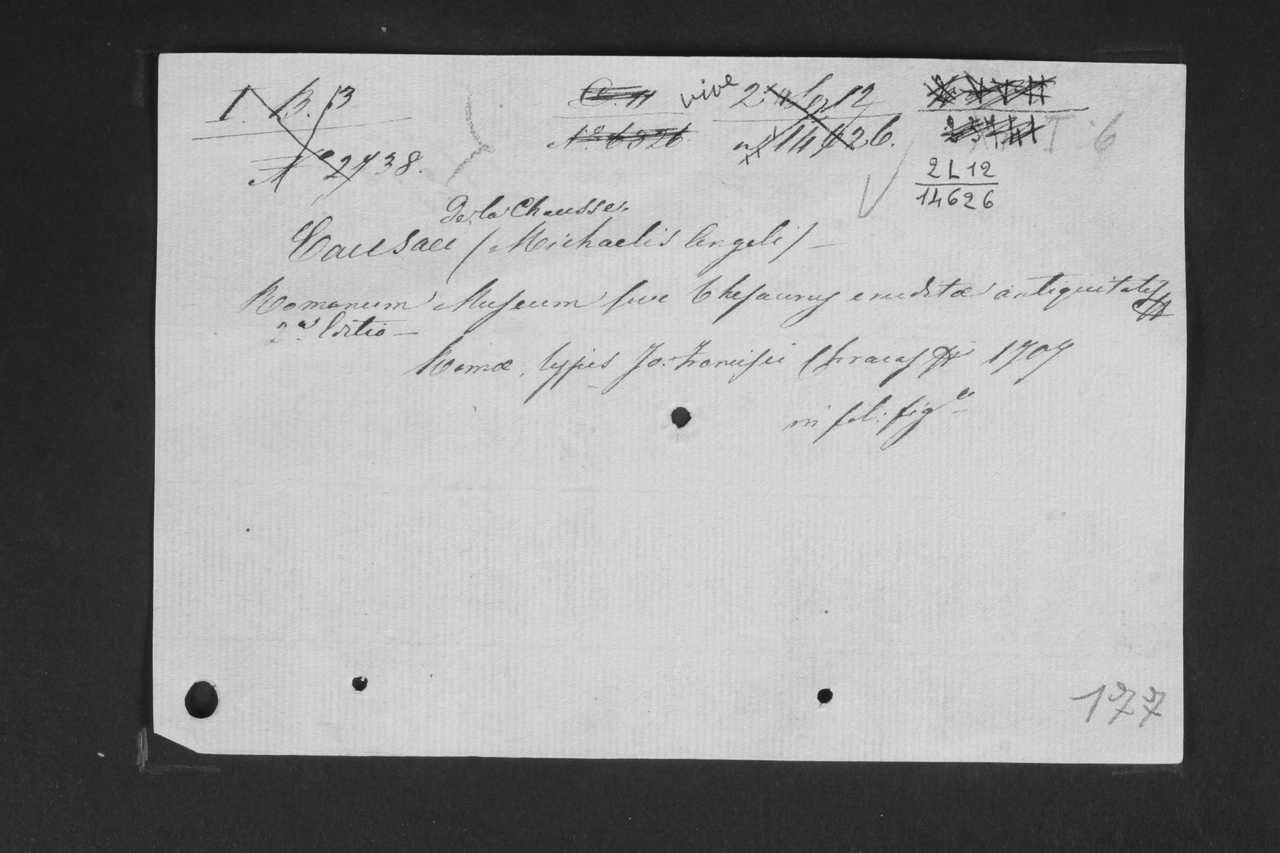 1. B. 3
N° 2738.
N° 6326
vive
2 L 12
n° 14626.
I. 6
2 L 12
14626
De la Chausse
Causaei (Michaelis Angeli) —
Romanum Museum sive Thesaurus eruditæ antiquitatis
2ª Editio —
Romæ, typis Jo: Francisci Chracas 1707
in fol: fig
177